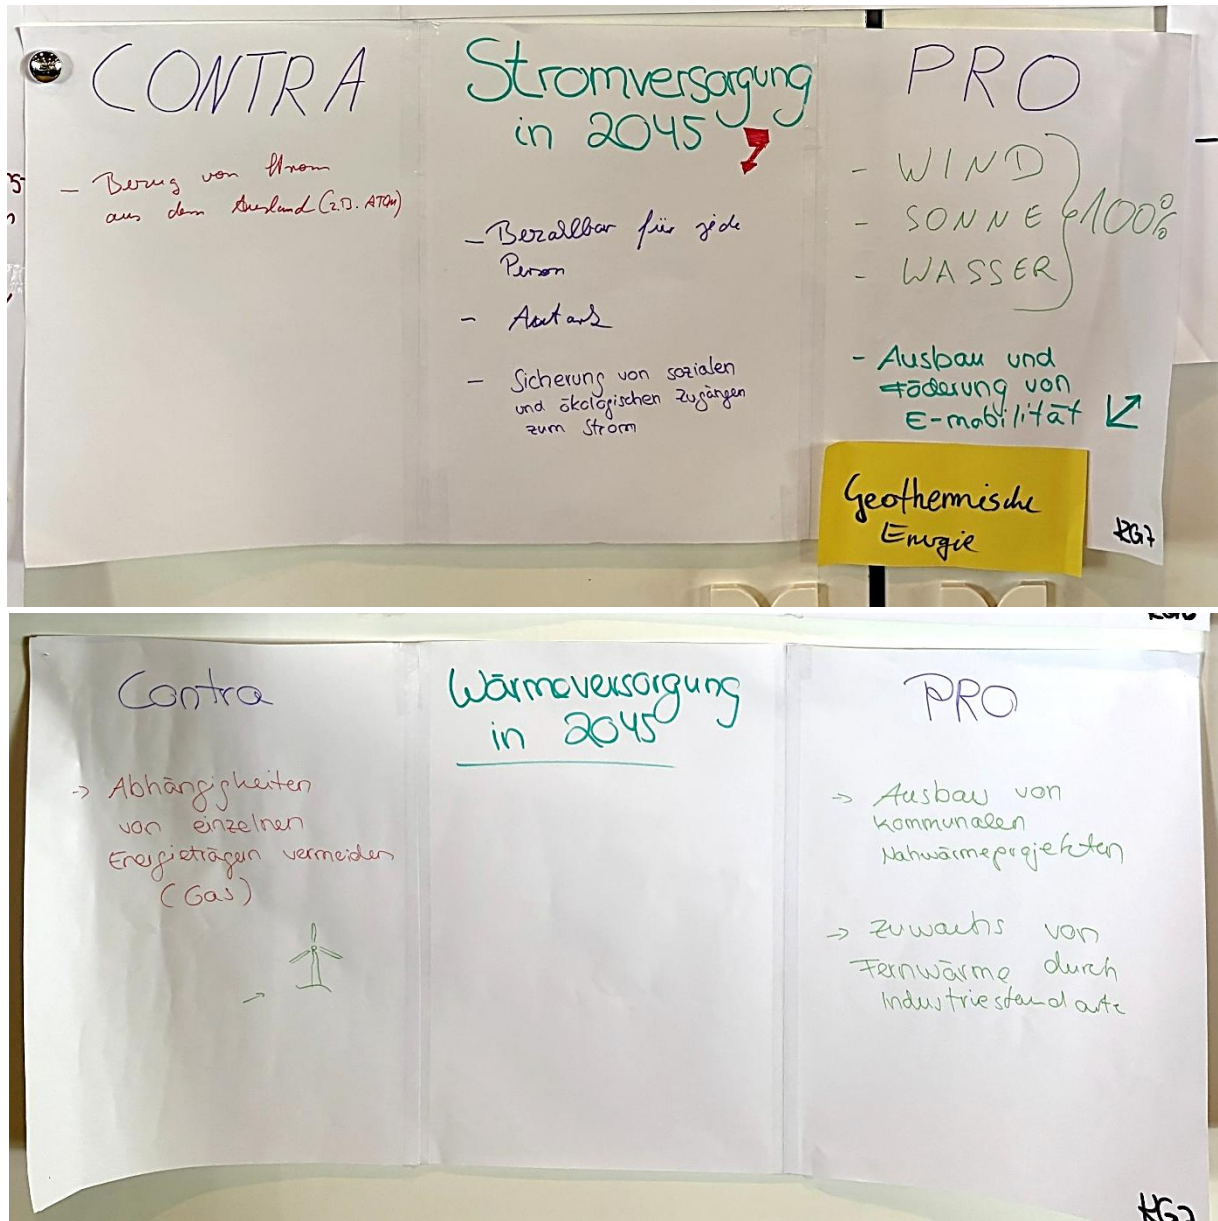 CONTRA
- Bezug von Strom
aus dem Ausland (z.B. ATOM)
Stromversorgung
in 2045
- Bezallbar für jede
Person
- Autark
- Sicherung von sozialen
und ökologischen Zugängen
zum Strom
PRO
- WIND
- SONNE
- WASSER
100%
- Ausbau und
Föderung von
E-mobilität
Geothermische
Energie
KG7
Contra
-> Abhängigkeiten
von einzelnen
Energieträgern vermeiden
(Gas)
Wärmeversorgung
in 2045
PRO
-> Ausbau von
kommunalen
Nahwärmeprojekten
-> Zuwachs von
Fernwärme durch
Industriestandorte
KG7